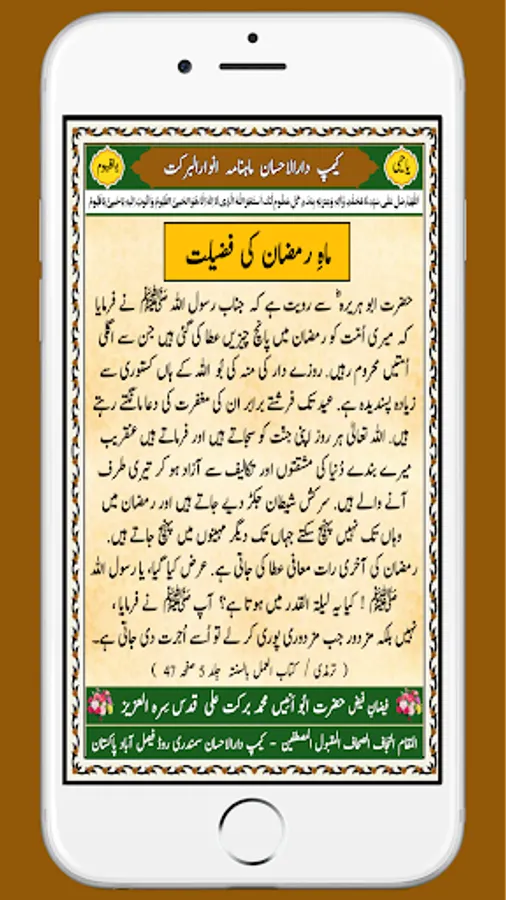 یاحیی
کیمپ دارالاحسان ماہنامہ انوارالبرکت
یاقیوم
ماہِ رمضان کی فضیلت
حضرت ابو ہریرہؓ سے رویت ہے کہ جناب رسول اللہ ﷺ نے فرمایا
کہ میری اُمت کو رمضان میں پانچ چیزیں عطا کی گئی ہیں جن سے اگلی
اُمتیں محروم رہیں۔ روزے دار کی منہ کی بُو اللہ کے ہاں کستوری سے
زیادہ پسندیدہ ہے۔ عید تک فرشتے برابر ان کی مغفرت کی دعا مانگتے رہتے
ہیں۔ اللہ تعالیٰ ہر روز اپنی جنت کو سجاتے ہیں اور فرماتے ہیں عنقریب
میرے بندے دُنیا کی مشقتوں اور تکالیف سے آزاد ہو کر تیری طرف
آنے والے ہیں۔ سرکش شیطان جکڑ دیے جاتے ہیں اور رمضان میں
وہاں تک نہیں پہنچ سکتے جہاں تک دیگر مہینوں میں پہنچ جاتے ہیں۔
رمضان کی آخری رات معافی عطا کی جاتی ہے۔ عرض کیا گیا، یا رسول اللہ
ﷺ ! کیا یہ لیلۃ القدر میں ہوتا ہے؟ آپ ﷺ نے فرمایا،
نہیں بلکہ مزدور جب مزدوری پوری کر لے تو اُسے اُجرت دی جاتی ہے۔
( ترمذی / کتاب العمل بالسنۃ جلد 5 صفحہ 47 )
فیضانِ فیض حضرت ابُو انیس محمد برکت علی قدس سرہ العزیز
المقام النجاف الصحاف المقبول المصطفین - کیمپ دارالاحسان سمندری روڈ فیصل آباد پاکستان